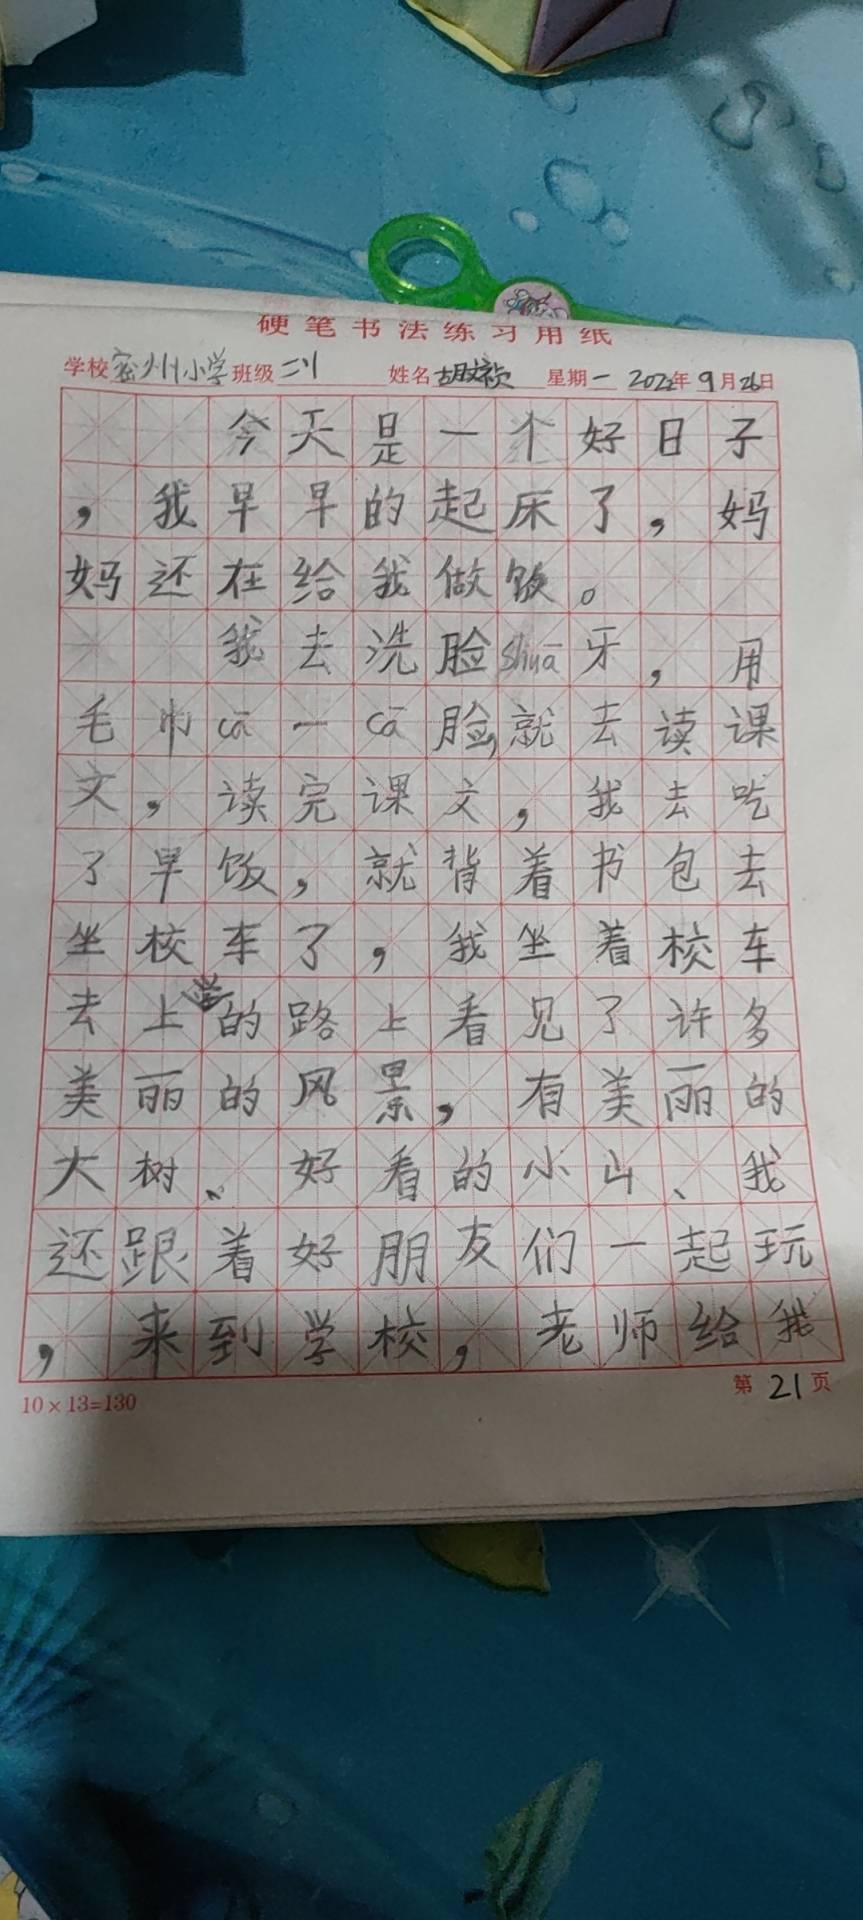 硬笔书法练习用纸
学校密州小学班级二川 姓名 星期一 2022年9月26日
今天是一个好日子
，我早早的起床了，妈
妈还在给我做饭。
我去洗脸shuā牙，用
毛巾cā一cā脸，就去读课
文，读完课文，我去吃
了早饭，就背着书包去
坐校车了，我坐着校车
去上学的路上看见了许多
美丽的风景，有美丽的
大树、好看的小山、我
还跟着好朋友们一起玩
，来到学校，老师给我
10×13=130 第21页